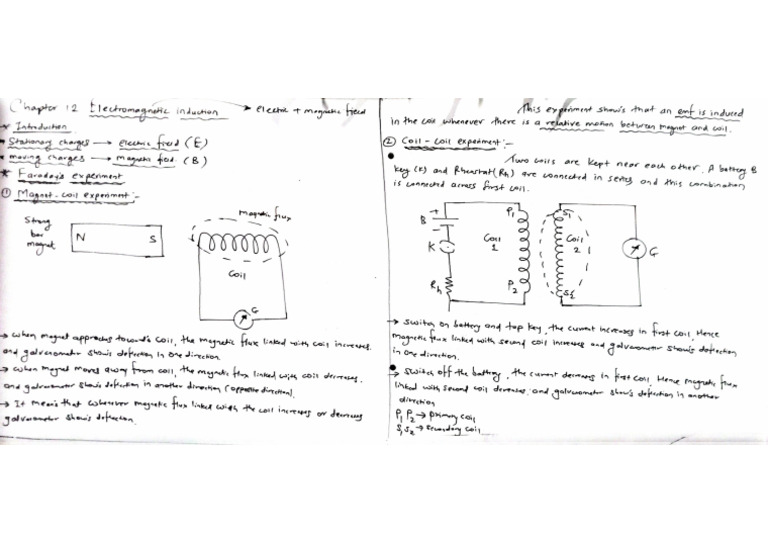 Chapter 12 Electromagnetic induction → electric + magnetic field
* Introduction
• Stationary charges → electric field (E)
• moving charges → magnetic field. (B)
* Faraday's experiment
① Magnet-coil experiment:-
Strong
bar
magnet
N S
magnetic flux
Coil
G
→ When magnet approches towards coil, the magnetic flux linked with coil increases.
and galvanometer shows deflection in one direction.
→ When magnet moves away from coil, the magnetic flux linked with coil decreases.
and galvanometer shows deflection in another direction (opposite direction).
→ It means that whenever magnetic flux linked with the coil increases or decreases
galvanometer shows deflection.
This experiment shows that an emf is induced
in the coil whenever there is a relative motion between magnet and coil.
② Coil - coil experiment:-
Two coils are kept near each other. A battery B
key (K) and Rheostat (Rh) are connected in series and this combination
is connected across first coil.
B
K
Rh
P1
Coil
1
P2
S1
Coil
2
S2
G
→ switch on battery and tap key, the current increases in first coil, Hence
magnetic flux linked with second coil increases and galvanometer shows deflection
in one direction.
→ switch off the battery, the current decreases in first coil, Hence magnetic flux
linked with second coil decreases, and galvanometer shows deflection in another
direction
P1 P2 → primary coil
S1 S2 → secondary coil